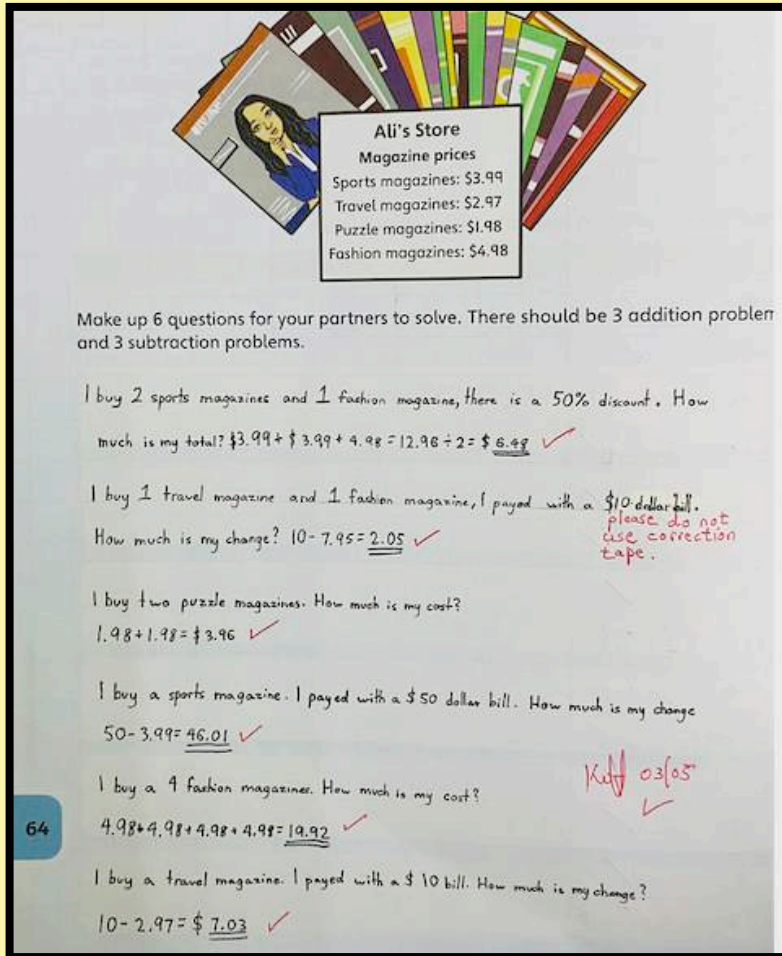 Ali's Store
Magazine prices
Sports magazines: $3.99
Travel magazines: $2.97
Puzzle magazines: $1.98
Fashion magazines: $4.98
Make up 6 questions for your partners to solve. There should be 3 addition problem
and 3 subtraction problems.
I buy 2 sports magazines and 1 fashion magazine, there is a 50% discount. How
much is my total? $3.99 + $3.99 + 4.98 = 12.96 ÷ 2 = $ 6.48 ✓
I buy 1 travel magazine and 1 fashion magazine, I payed with a $10 dollar bill.
please do not
use correction
tape.
How much is my change? 10 - 7.95 = 2.05 ✓
I buy two puzzle magazines. How much is my cost?
1.98 + 1.98 = $3.96 ✓
I buy a sports magazine. I payed with a $50 dollar bill. How much is my change
50 - 3.99 = 46.01 ✓
03/05
I buy a 4 fashion magazines. How much is my cost?
64
4.98 + 4.98 + 4.98 + 4.98 = 19.92 ✓
I buy a travel magazine. I payed with a $10 bill. How much is my change?
10 - 2.97 = $ 7.03 ✓